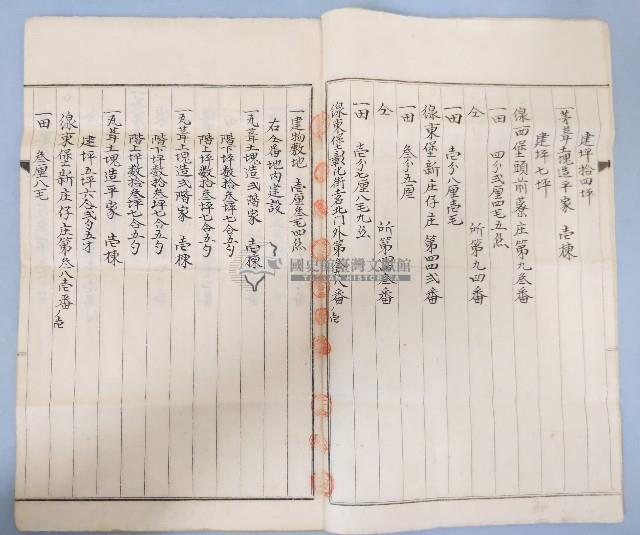 建坪拾四坪
一茅葺土塊造平家 壱棟
建坪七坪
線西堡頭前藔庄第九叁番
一田 四分弐厘四毛五糸
仝 所第九四番
一田 壱分八厘壱毛
線東堡新庄仔庄第四四弐番
一田 叁分五厘
仝 所第 叁番
一田 壱分七厘八毛九糸
線東堡彰化街北門外第 八番ノ壱
一建物敷地 壱厘叁毛四糸
右仝番地内建設
一瓦葺土塊造弐階家 壱棟
階下坪数拾叁坪七合五勺
階上坪数拾叁坪七合五勺
一瓦葺土塊造弐階家 壱棟
階下坪数拾叁坪七合五勺
階上坪数拾叁坪七合五勺
一瓦葺土塊造平家 壱棟
建坪五坪六合弐勺五才
線東堡新庄仔庄第叁八壱番ノ壱
一田 叁厘八毛
國史館臺灣文獻館
TAIWAN HISTORICA